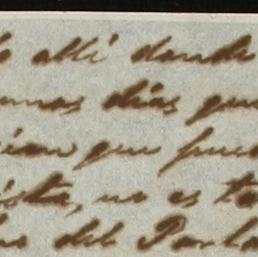 allí donde
unas días que
que pued
ista, no es ta
del Parla